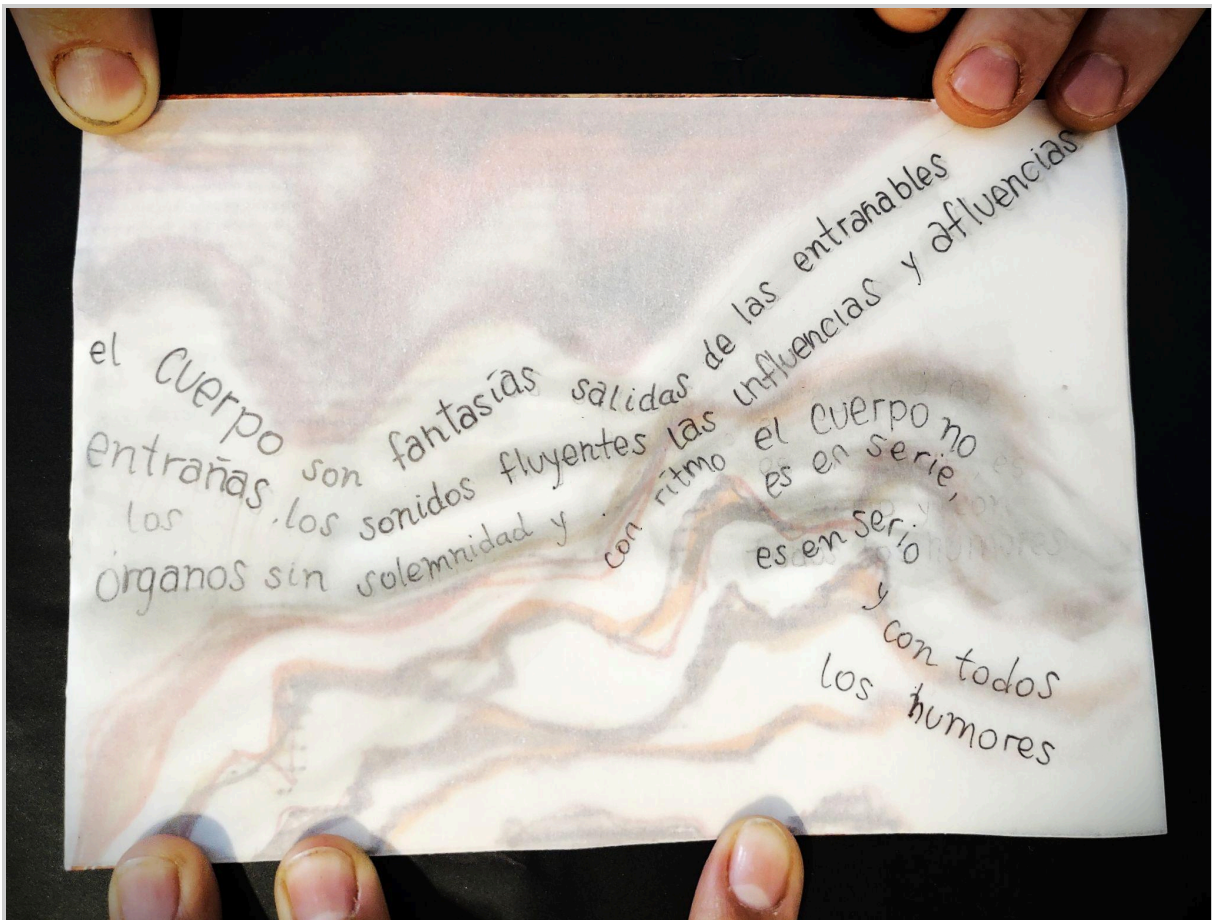 el cuerpo son fantasías salidas de las entrañables
entrañas, los sonidos fluyentes las influencias y afluencias
los
órganos sin solemnidad y
con ritmo el cuerpo no
es en serie,
es en serio
y
con todos
los humores